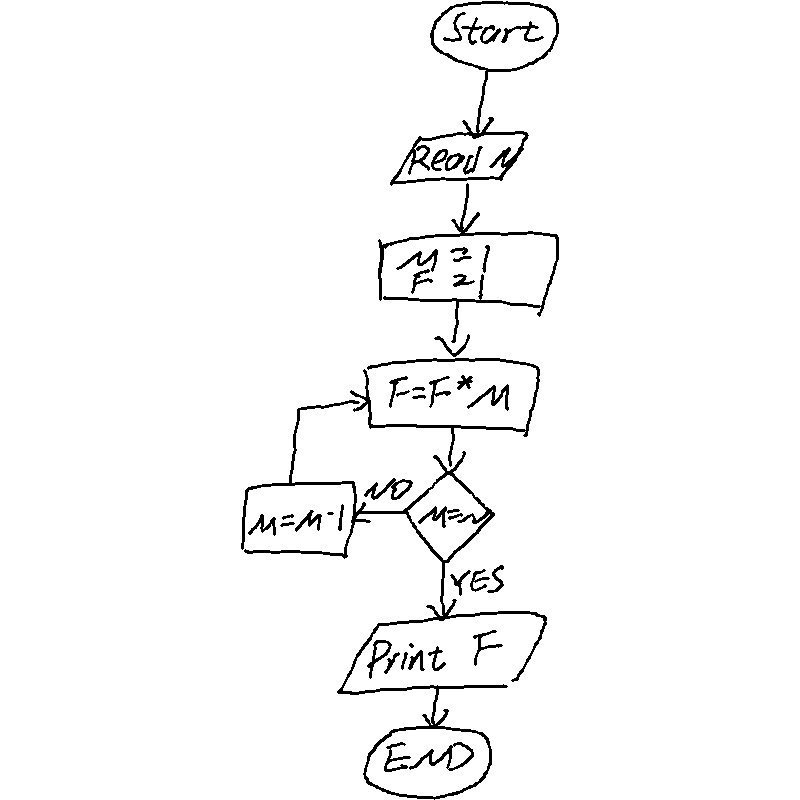 Start
Read N
M = 1
F = 1
F=F*M
NO
M=M-1
M=N
YES
Print F
END